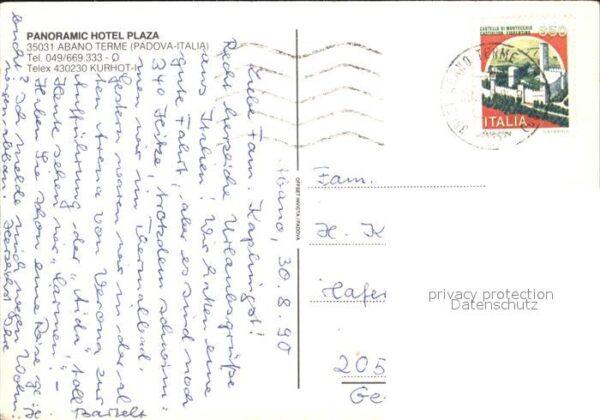 PANORAMIC HOTEL PLAZA
35031 ABANO TERME (PADOVA-ITALIA)
Tel. 049/669.333 -
Telex 430230 KURHOT-I
CASTELLO DI MONTECCHIO
CASTIGLION FIORENTINO
ITALIA
TERME
OFFSET INVICTA/PADOVA
Abano, 30.8.90
Liebe Fam.
Recht herzliche Urlaubsgrüße
aus Italien! Wir hatten eine
gute Fahrt, aber es sind noch
340 Hitze, trotzdem schwim-
men wir im Thermalbad.
Gestern waren wir in der
in Arena von Verona zur
Aufführung der "Aida", toll
Heute sehen wir "Carmen". -
Haben Sie schon eine Reise
Ich melde mich wegen
Bartelt
Fam.
H. K
Hafer
205
Ge
privacy protection
Datenschutz